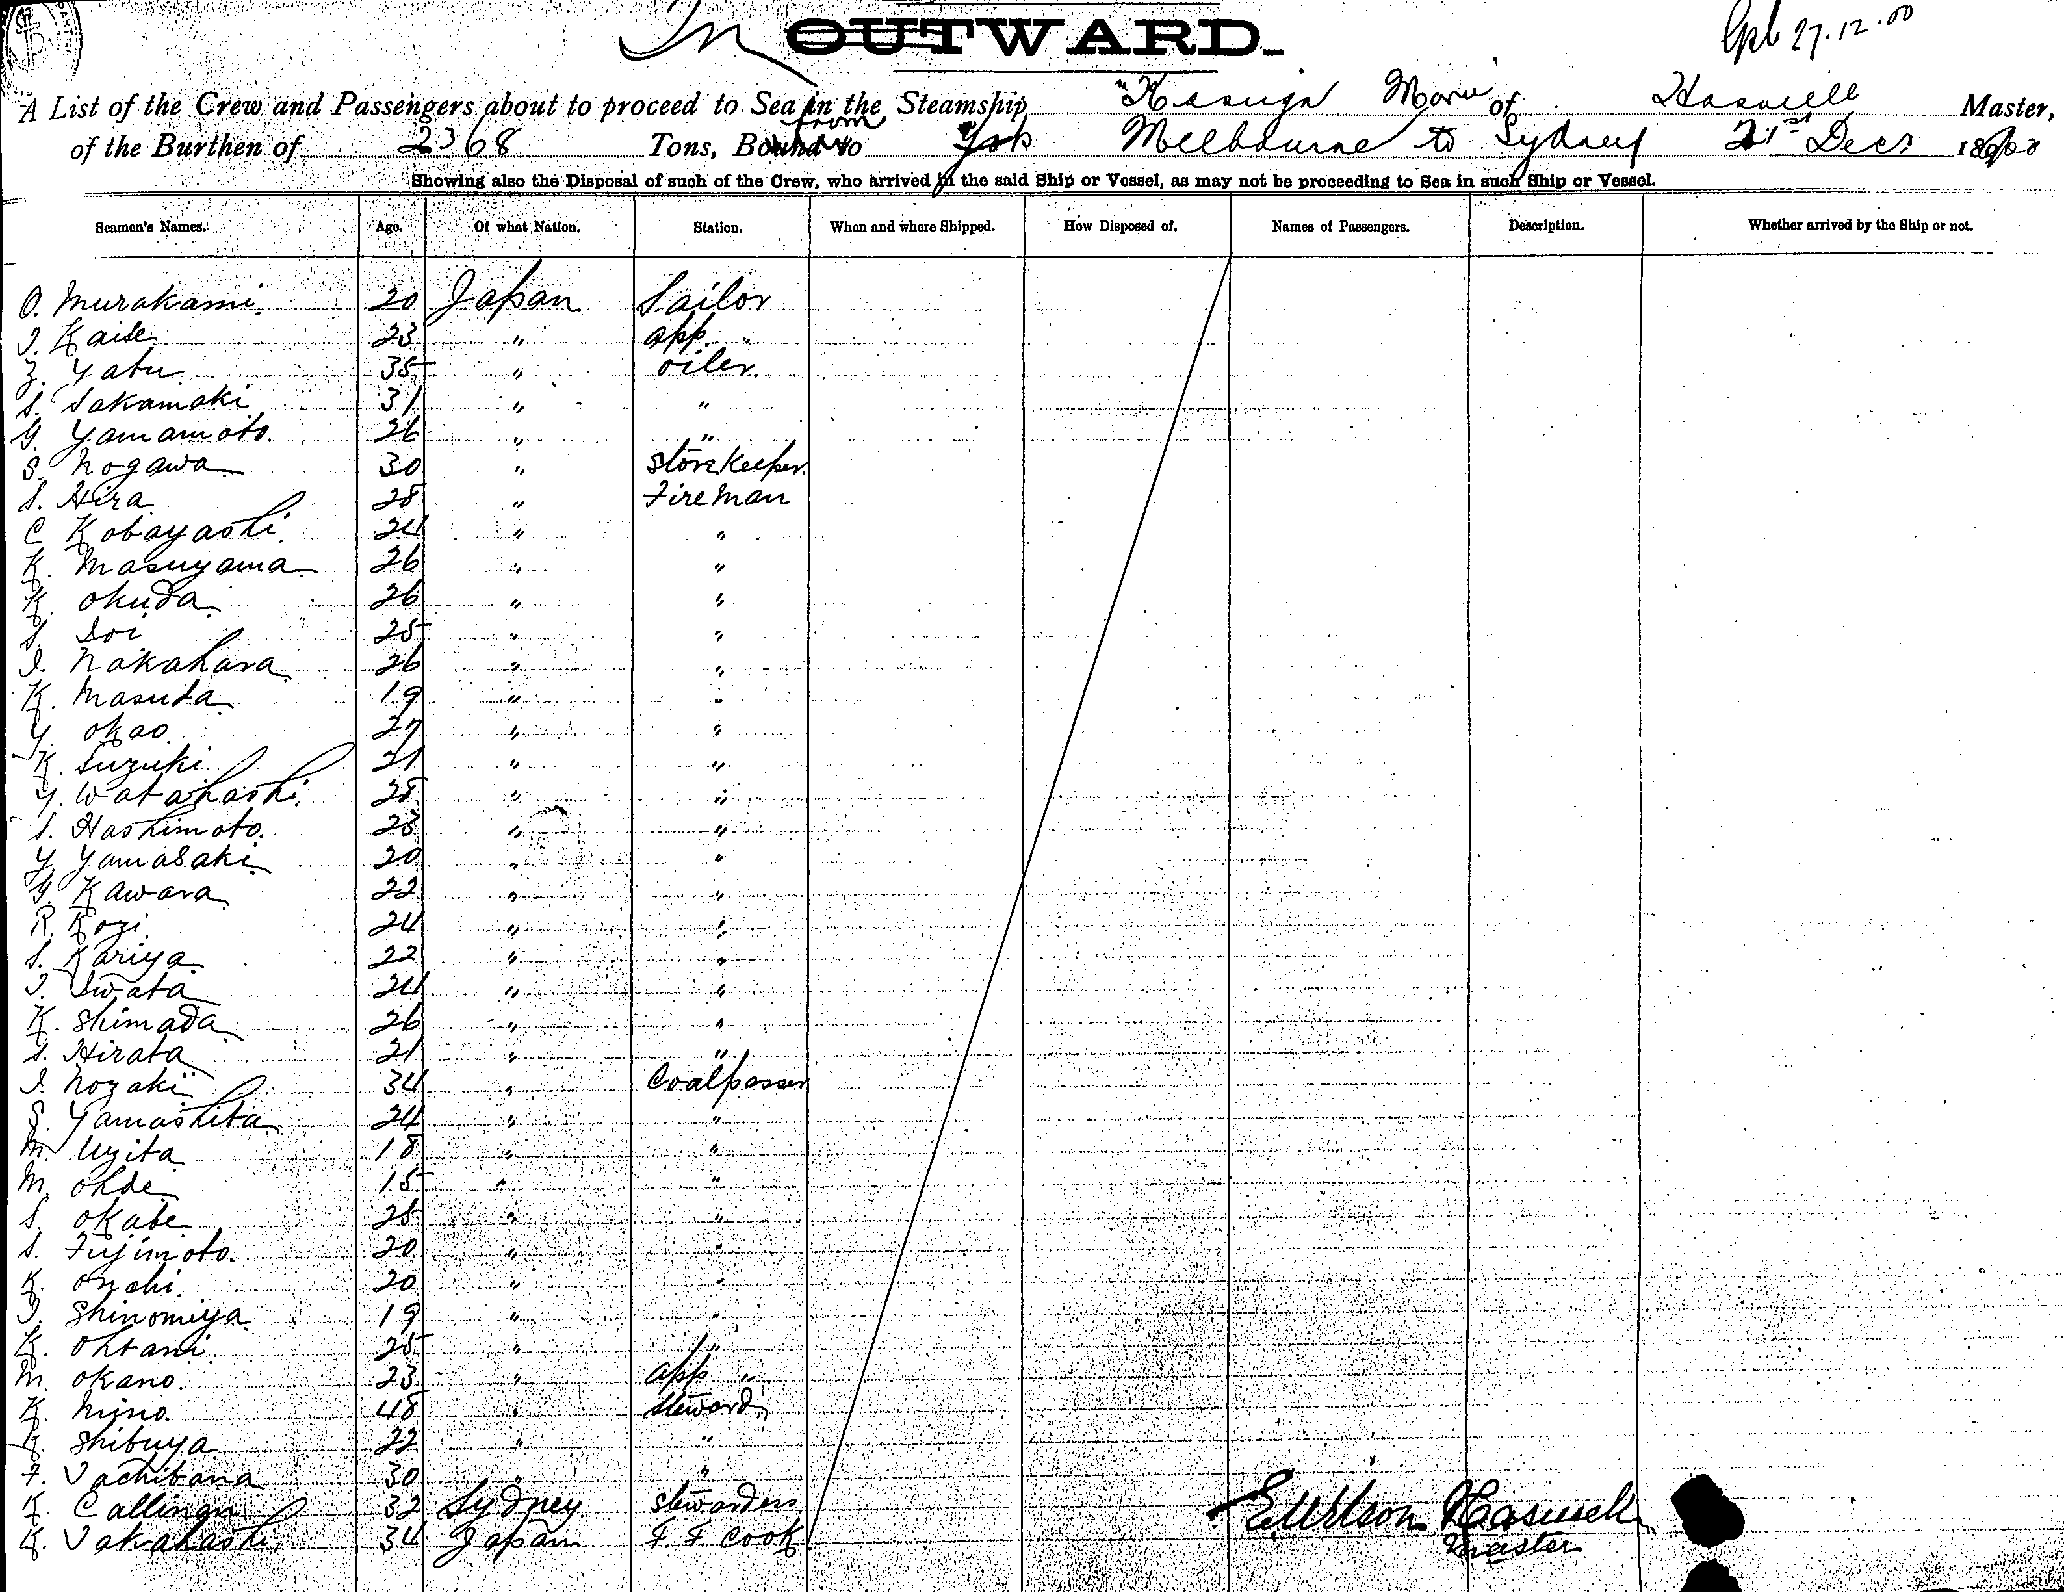 In OUTWARD.
27.12.00
A List of the Crew and Passengers about to proceed to Sea in the Steamship "Kasuga Maru" of Haswell Master,
of the Burthen of 2368 Tons, Bound to from Melbourne to Sydney 21st Decr 1900
Showing also the Disposal of such of the Crew, who arrived in the said Ship or Vessel, as may not be proceeding to Sea in such Ship or Vessel.
Seamen's Names. Age. Of what Nation. Station. When and where Shipped. How Disposed of. Names of Passengers. Description. Whether arrived by the Ship or not.
O. Murakami. 20 Japan Sailor
23 " app. "
Z. Yabu 35 " oiler.
S. Sakamaki 31 " "
G. Yamamoto. 26 " "
S. Nogawa 30 " Storekeeper.
S. Hira 28 " Fireman
C Kobayashi. 24 " "
K. Masuyama 26 " "
K. Okuda 26 " "
S. Doi 25 " "
I. Nakahara 26 " "
K. Masuda 19 " "
Y. Okao. 27 " "
K. Suzuki 21 " "
Y. Watahashi. 28 " "
S. Hashimoto. 23 " "
Y. Yamasaki 20 " "
G. Kawara 22 " "
R. Kozi. 24 " "
S. Kariya 22 " "
I. Iwata 24 " "
K. Shimada 26 " "
S. Hirata 21 " "
I. Nozaki 34 " Coalpasser
S. Yamashita 24 " "
M. Ujita 18 " "
M. Ohde 15 " "
S. Okabe 28 " "
S. Fujimoto. 20 " "
K. Onchi. 20 " "
I. Shinomiya 19 " "
K. Ohtani. 25 " "
M. Okano. 23 " app "
K. 48 " Steward
K. Shibuya 22 " "
F. Tachibana 30 " "
K. 32 Sydney Stewardess
K. Takahashi. 34 Japan F F Cook
E. Wilson Haswell
Master